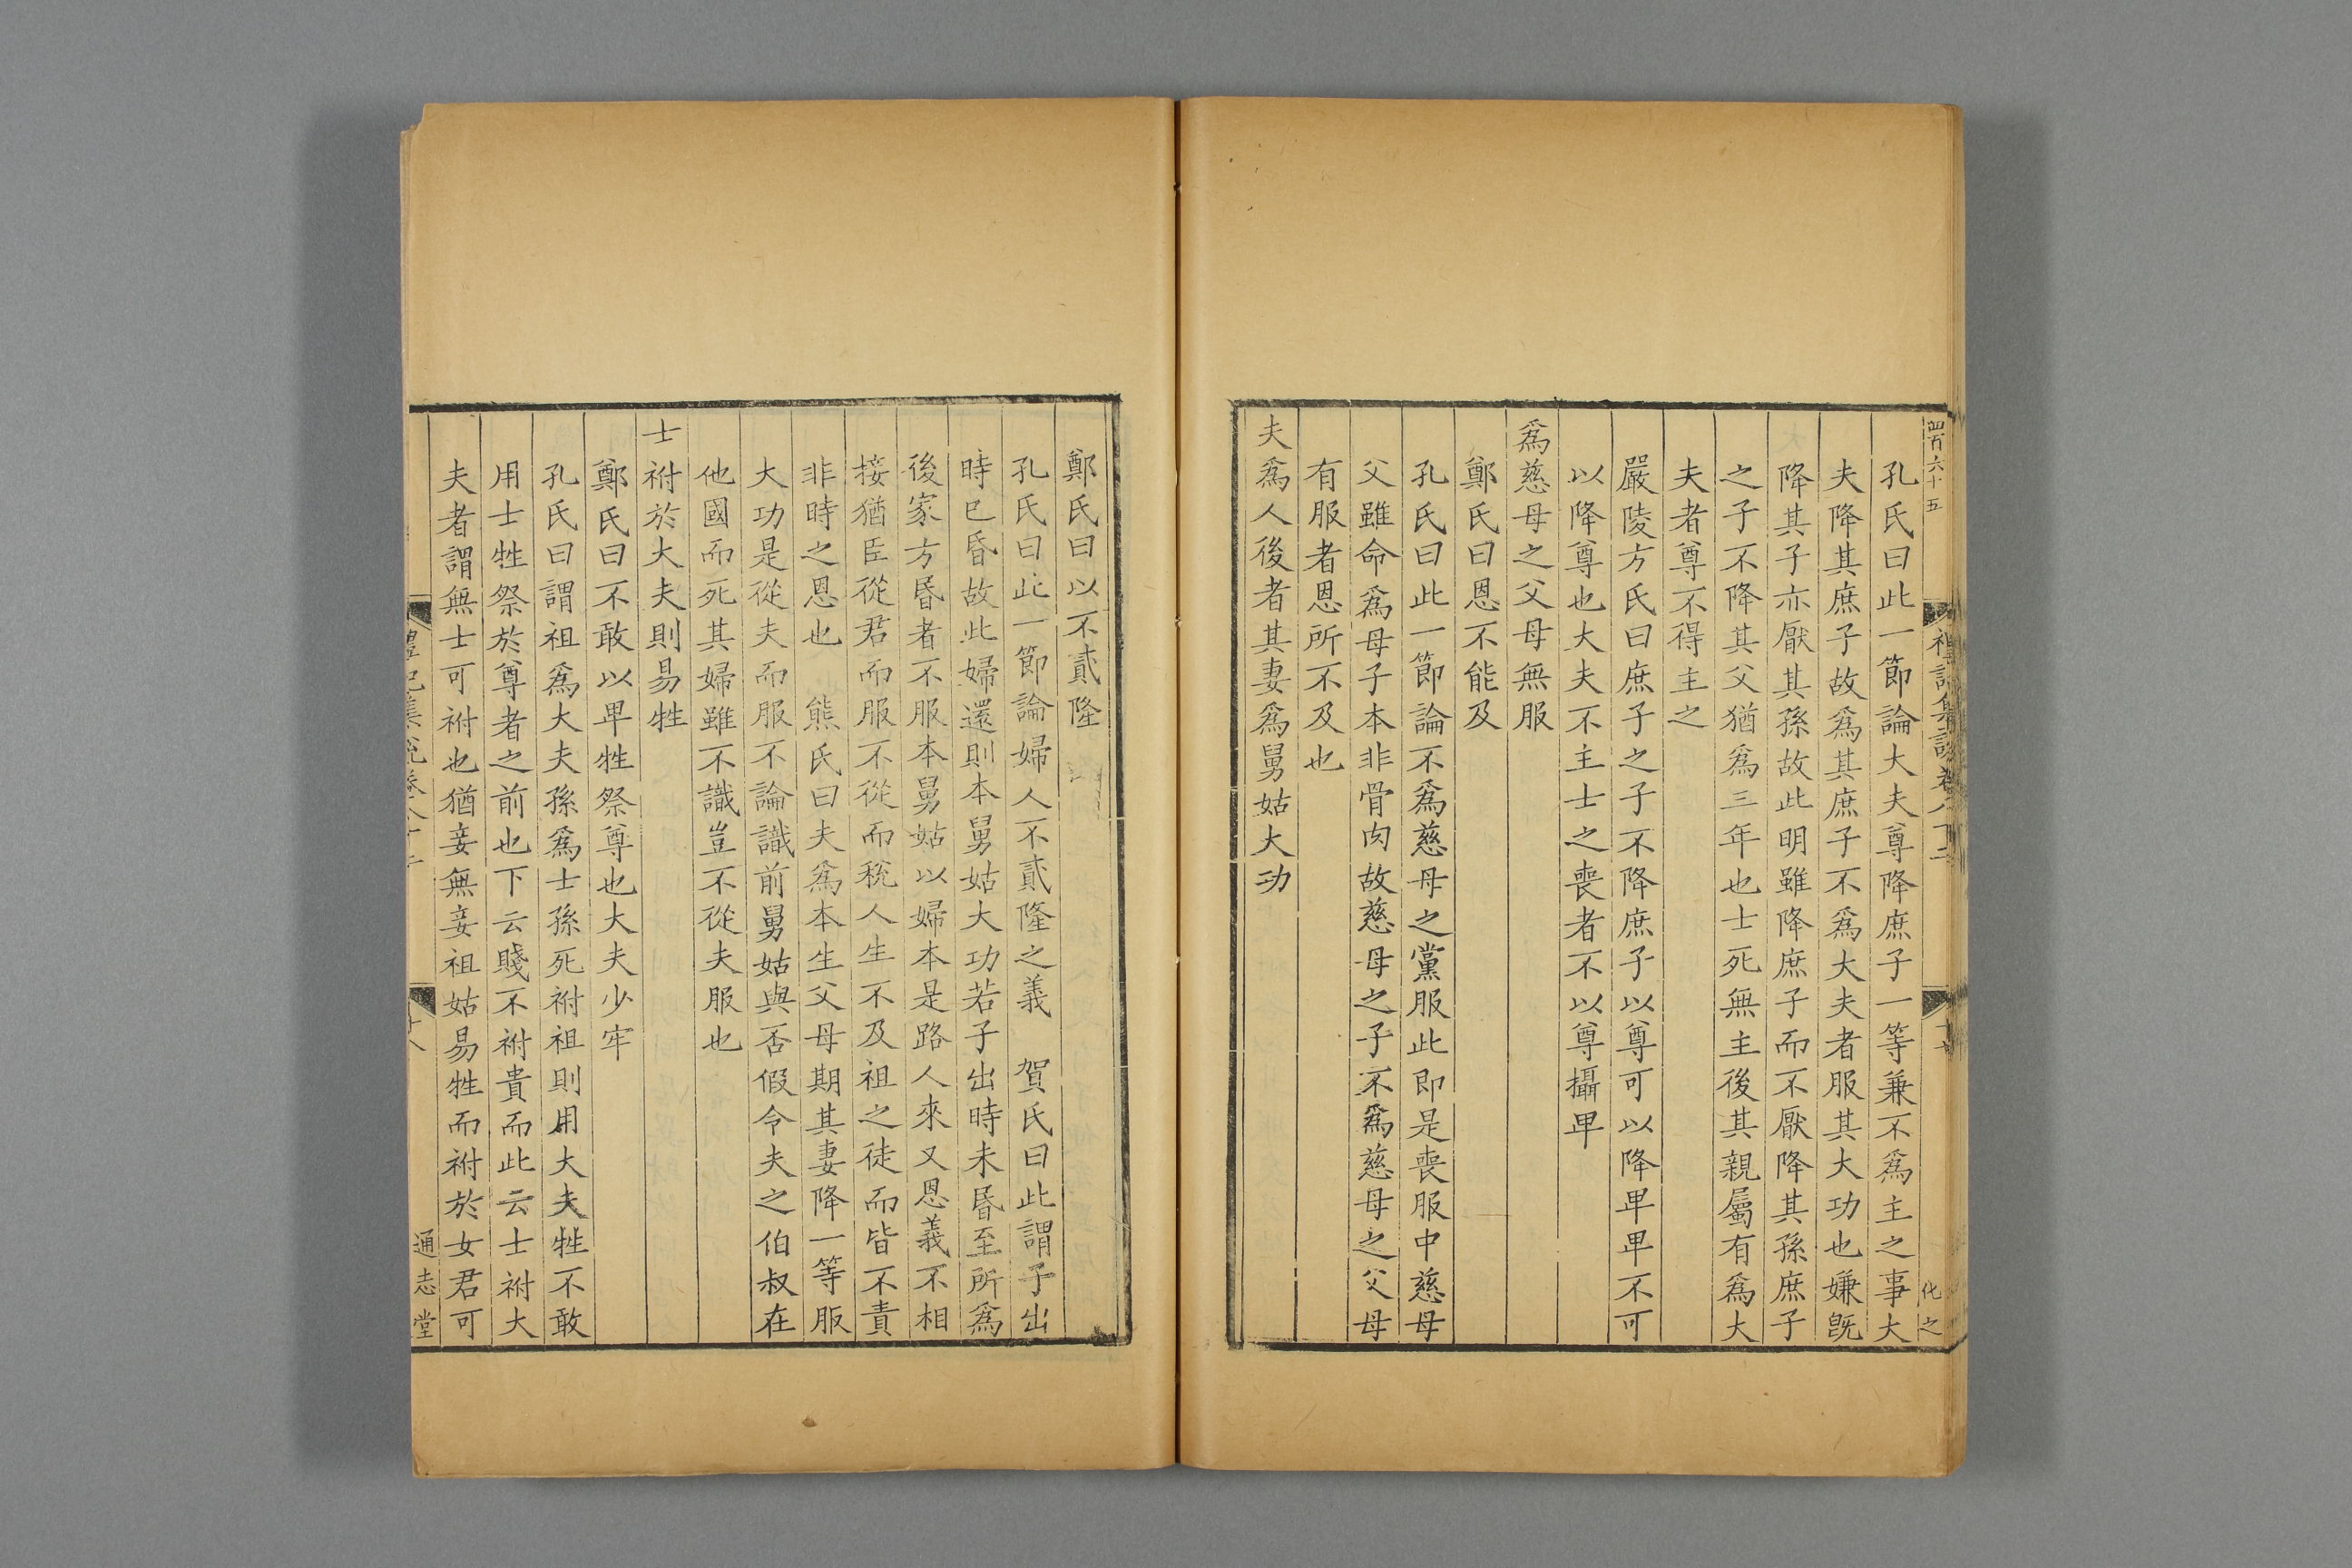 四百六十五
化之
孔氏曰此一節論大夫尊降庶子一等兼不爲主之事大
夫降其庶子故爲其庶子不爲大夫者服其大功也嫌旣
降其子亦厭其孫故此明雖降庶子而不厭降其孫庶子
之子不降其父猶爲三年也士死無主後其親屬有爲大
夫者尊不得主之
嚴陵方氏曰庶子之子不降庶子以尊可以降𤰞𤰞不可
以降尊也大夫不主士之喪者不以尊攝𤰞
爲慈母之父母無服
鄭氏曰恩不能及
孔氏曰此一節論不爲慈母之黨服此即是喪服中慈母
父雖命爲母子本非骨肉故慈母之子不爲慈母之父母
有服者恩所不及也
夫爲人後者其妻爲舅姑大功
鄭氏曰以不貳隆
孔氏曰此一節論婦人不貳隆之義 賀氏曰此謂子出
時已昏故此婦還則本舅姑大功若子出時未昏至所爲
後家方昏者不服本舅姑以婦本是路人來又恩義不相
接猶臣從君而服不從而稅人生不及祖之徒而皆不責
非時之恩也 熊氏曰夫爲本生父母期其妻降一等服
大功是從夫而服不論識前舅姑與否假令夫之伯叔在
他國而死其婦雖不識豈不從夫服也
士祔於大夫則易牲
鄭氏曰不敢以𤰞牲祭尊也大夫少牢
孔氏曰謂祖爲大夫孫爲士孫死祔祖則用大夫牲不敢
用士牲祭於尊者之前也下云賤不祔貴而此云士祔大
夫者謂無士可祔也猶妾無妾祖姑易牲而祔於女君可
十八
通志堂